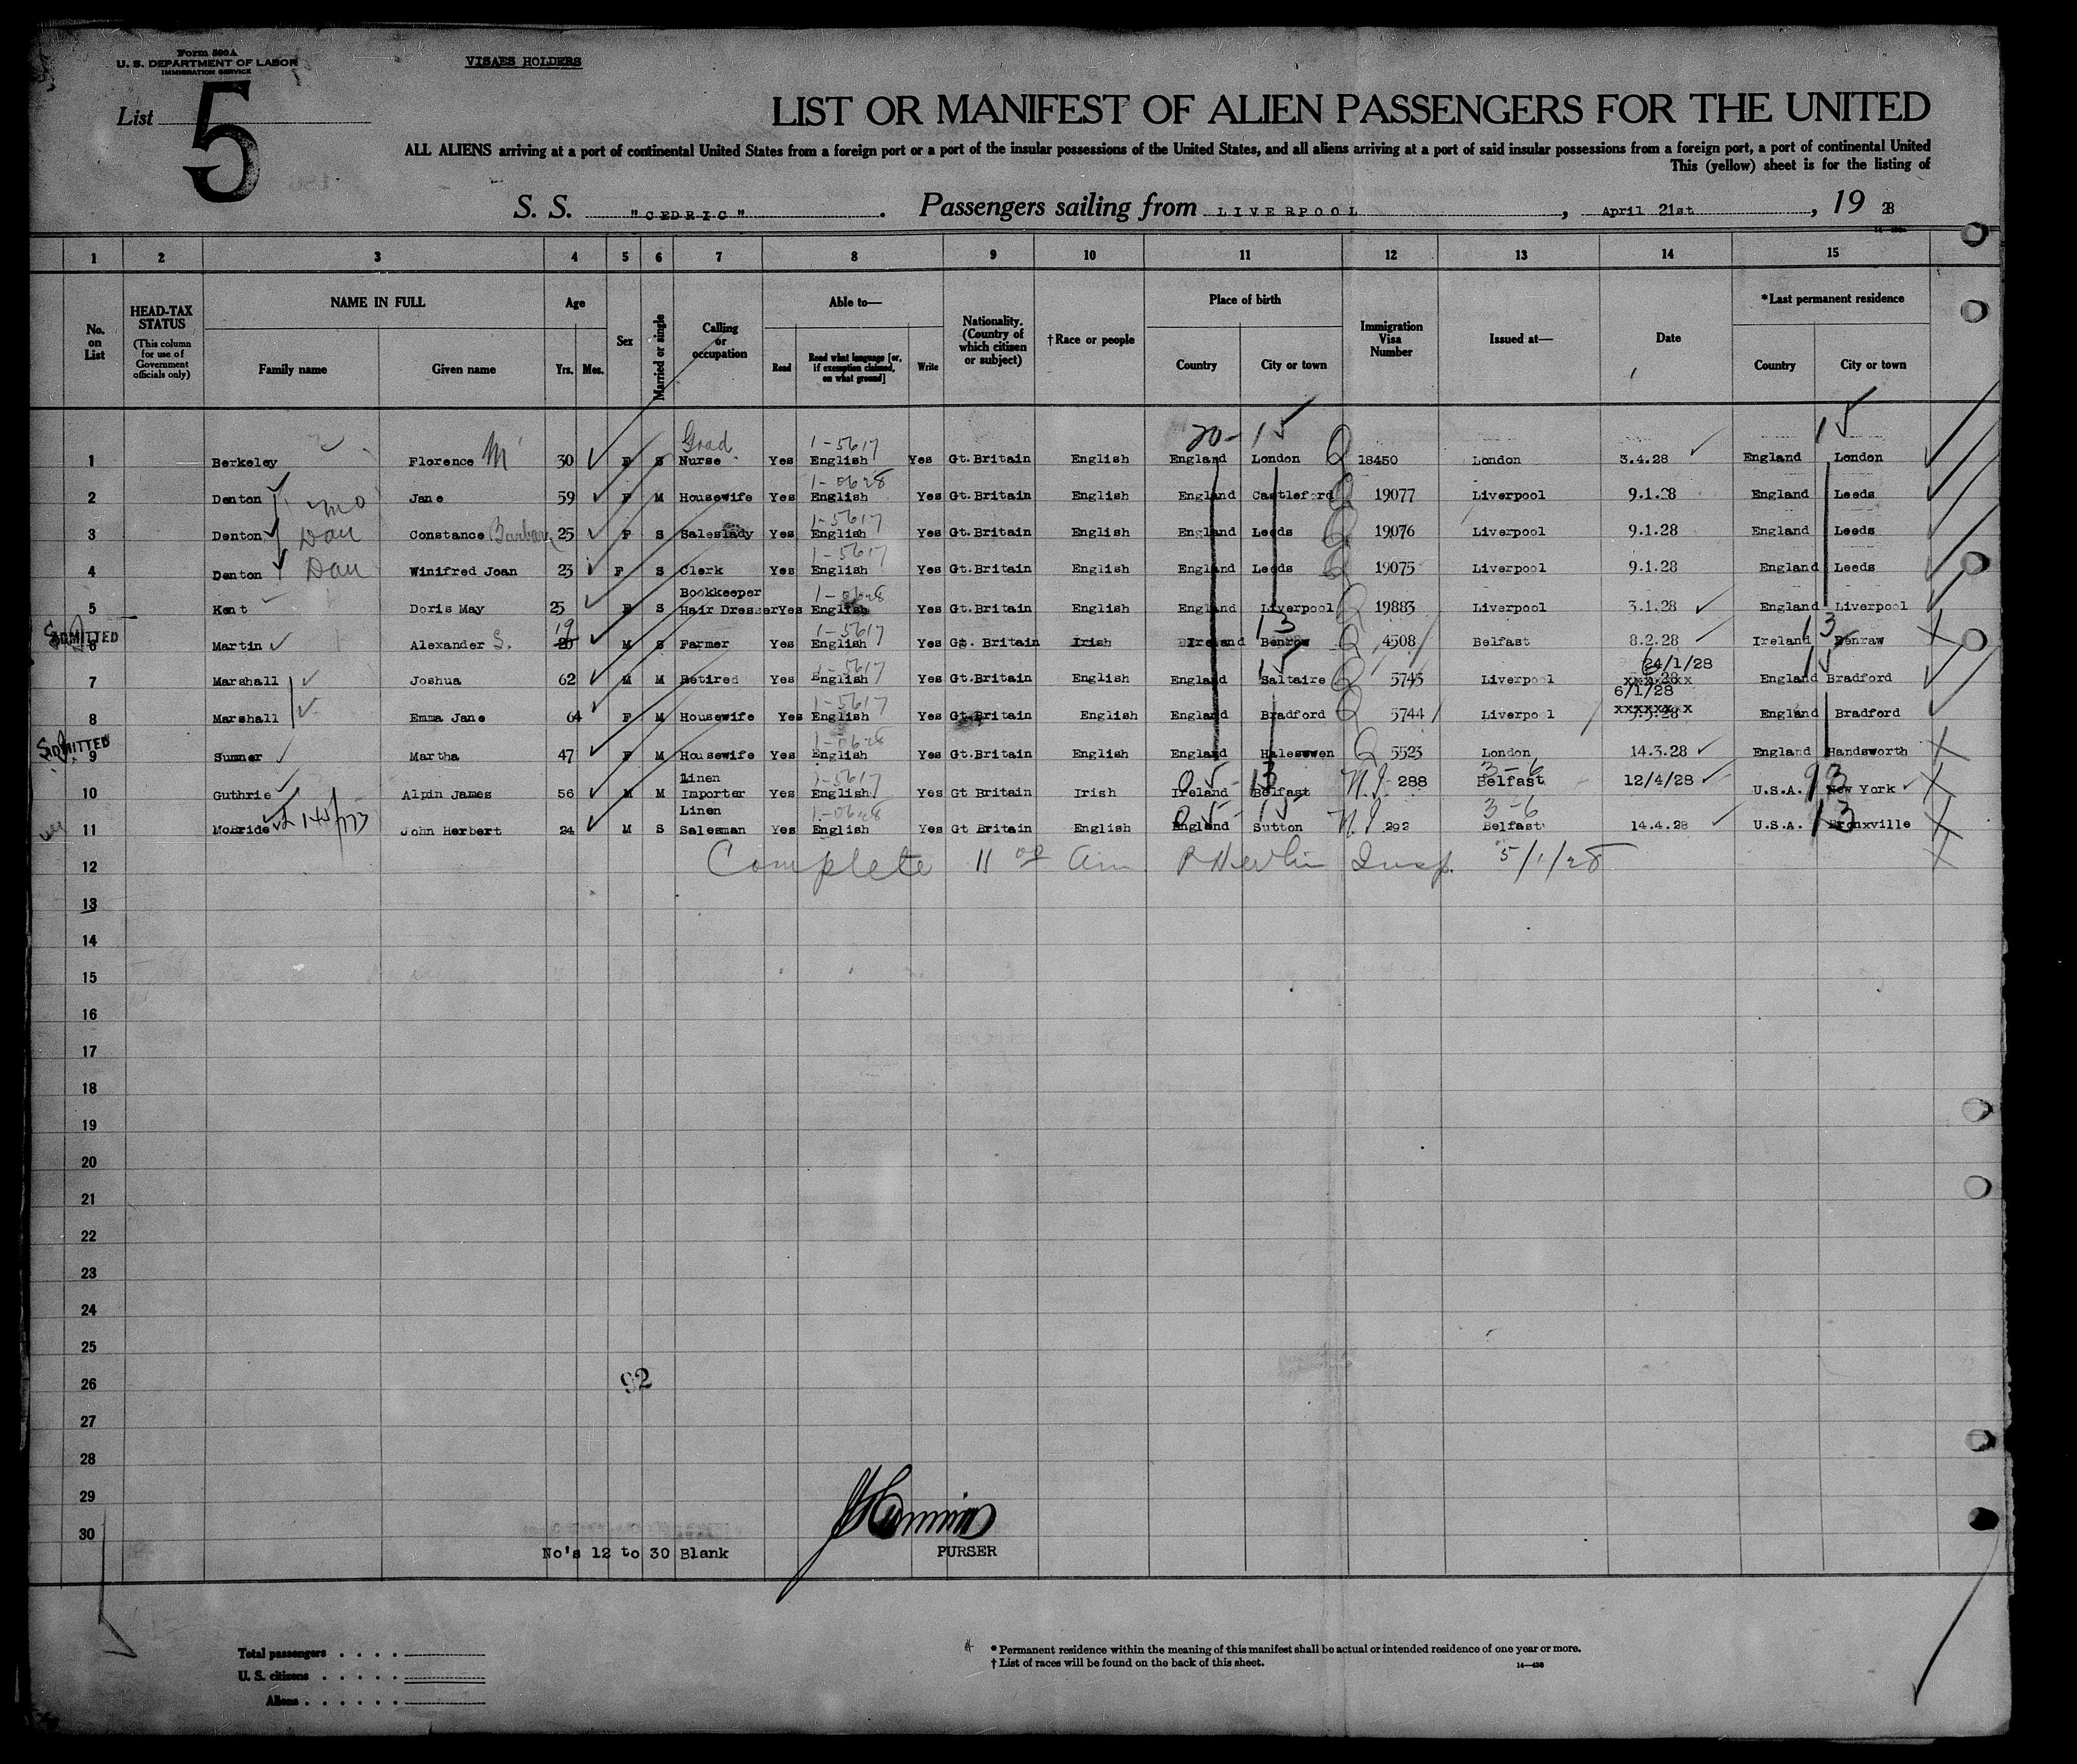 Form 500A
U. S. DEPARTMENT OF LABOR
IMMIGRATION SERVICE
VISAES HOLDERS
List 5
LIST OR MANIFEST OF ALIEN PASSENGERS FOR THE UNITED
ALL ALIENS arriving at a port of continental United States from a foreign port or a port of the insular possessions of the United States, and all aliens arriving at a port of said insular possessions from a foreign port, a port of continental United
This (yellow) sheet is for the listing of
S. S. "CEDRIC". Passengers sailing from LIVERPOOL, April 21st, 19 28
1 2 3 4 5 6 7 8 9 10 11 12 13 14 15
No. on List
HEAD-TAX STATUS (This column for use of Government officials only)
NAME IN FULL
Family name Given name
Age
Yrs. Mos.
Sex
Married or single
Calling or occupation
Able to—
Read Read what language [or, if exemption claimed, on what ground] Write
Nationality. (Country of which citizen or subject)
†Race or people
Place of birth
Country City or town
Immigration Visa Number
Issued at—
Date
*Last permanent residence
Country City or town
20- 15 15
Grad 1-5617
1 Berkeley Florence M 30 F S Nurse Yes English Yes Gt.Britain English England London Q 18450 London 3.4.28 England London
1-0628
2 Denton mo Jane 59 F M Housewife Yes English Yes Gt.Britain English England Castleford Q 19077 Liverpool 9.1.28 England Leeds
1-5617
3 Denton Dau Constance Barbara 25 F S Saleslady Yes English Yes Gt.Britain English England Leeds Q 19076 Liverpool 9.1.28 England Leeds
1-5617
4 Denton Dau Winifred Joan 23 F S Clerk Yes English Yes Gt.Britain English England Leeds Q 19075 Liverpool 9.1.28 England Leeds
Bookkeeper 1-0628
5 Kent Doris May 25 F S Hair Dresser Yes English Yes Gt.Britain English England Liverpool Q 19883 Liverpool 3.1.28 England Liverpool
ADMITTED 19 1-5617 13 13
6 Martin Alexander S. 20 M S Farmer Yes English Yes Gt. Britain Irish Ireland Benraw Q 4508 Belfast 8.2.28 Ireland Benraw
1-5617 15 24/1/28 15
7 Marshall Joshua 62 M M Retired Yes English Yes Gt.Britain English England Saltaire Q 5745 Liverpool England Bradford
1-5617 6/1/28
8 Marshall Emma Jane 64 F M Housewife Yes English Yes Gt.Britain English England Bradford Q 5744 Liverpool England Bradford
ADMITTED 1-0628
9 Sumner Martha 47 F M Housewife Yes English Yes Gt.Britain English England Halesowen Q 5523 London 14.3.28 England Handsworth
Linen 1-5617 05-13 3-6
10 Guthrie Alpin James 56 M M Importer Yes English Yes Gt Britain Irish Ireland Belfast N.I. 288 Belfast 12/4/28 U.S.A. New York
Linen 1-0628 05-15 3-6 13
11 McBride John Herbert 24 M S Salesman Yes English Yes Gt Britain English England Sutton N.I 292 Belfast 14.4.28 U.S.A. Bronxville
12 Complete 11 Insp. 5/1/28
13
14
15
16
17
18
19
20
21
22
23
24
25
26
92
27
28
29
30
No's 12 to 30 Blank
PURSER
Total passengers
U. S. citizens
Aliens
* Permanent residence within the meaning of this manifest shall be actual or intended residence of one year or more.
† List of races will be found on the back of this sheet.
14—430